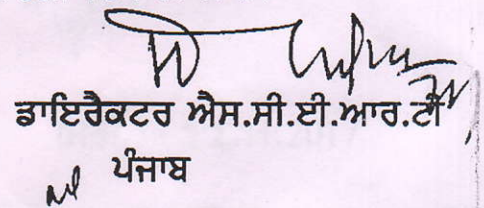 ਡਾਇਰੈਕਟਰ ਐਸ.ਸੀ.ਈ.ਆਰ.ਟੀ
ਪੰਜਾਬ